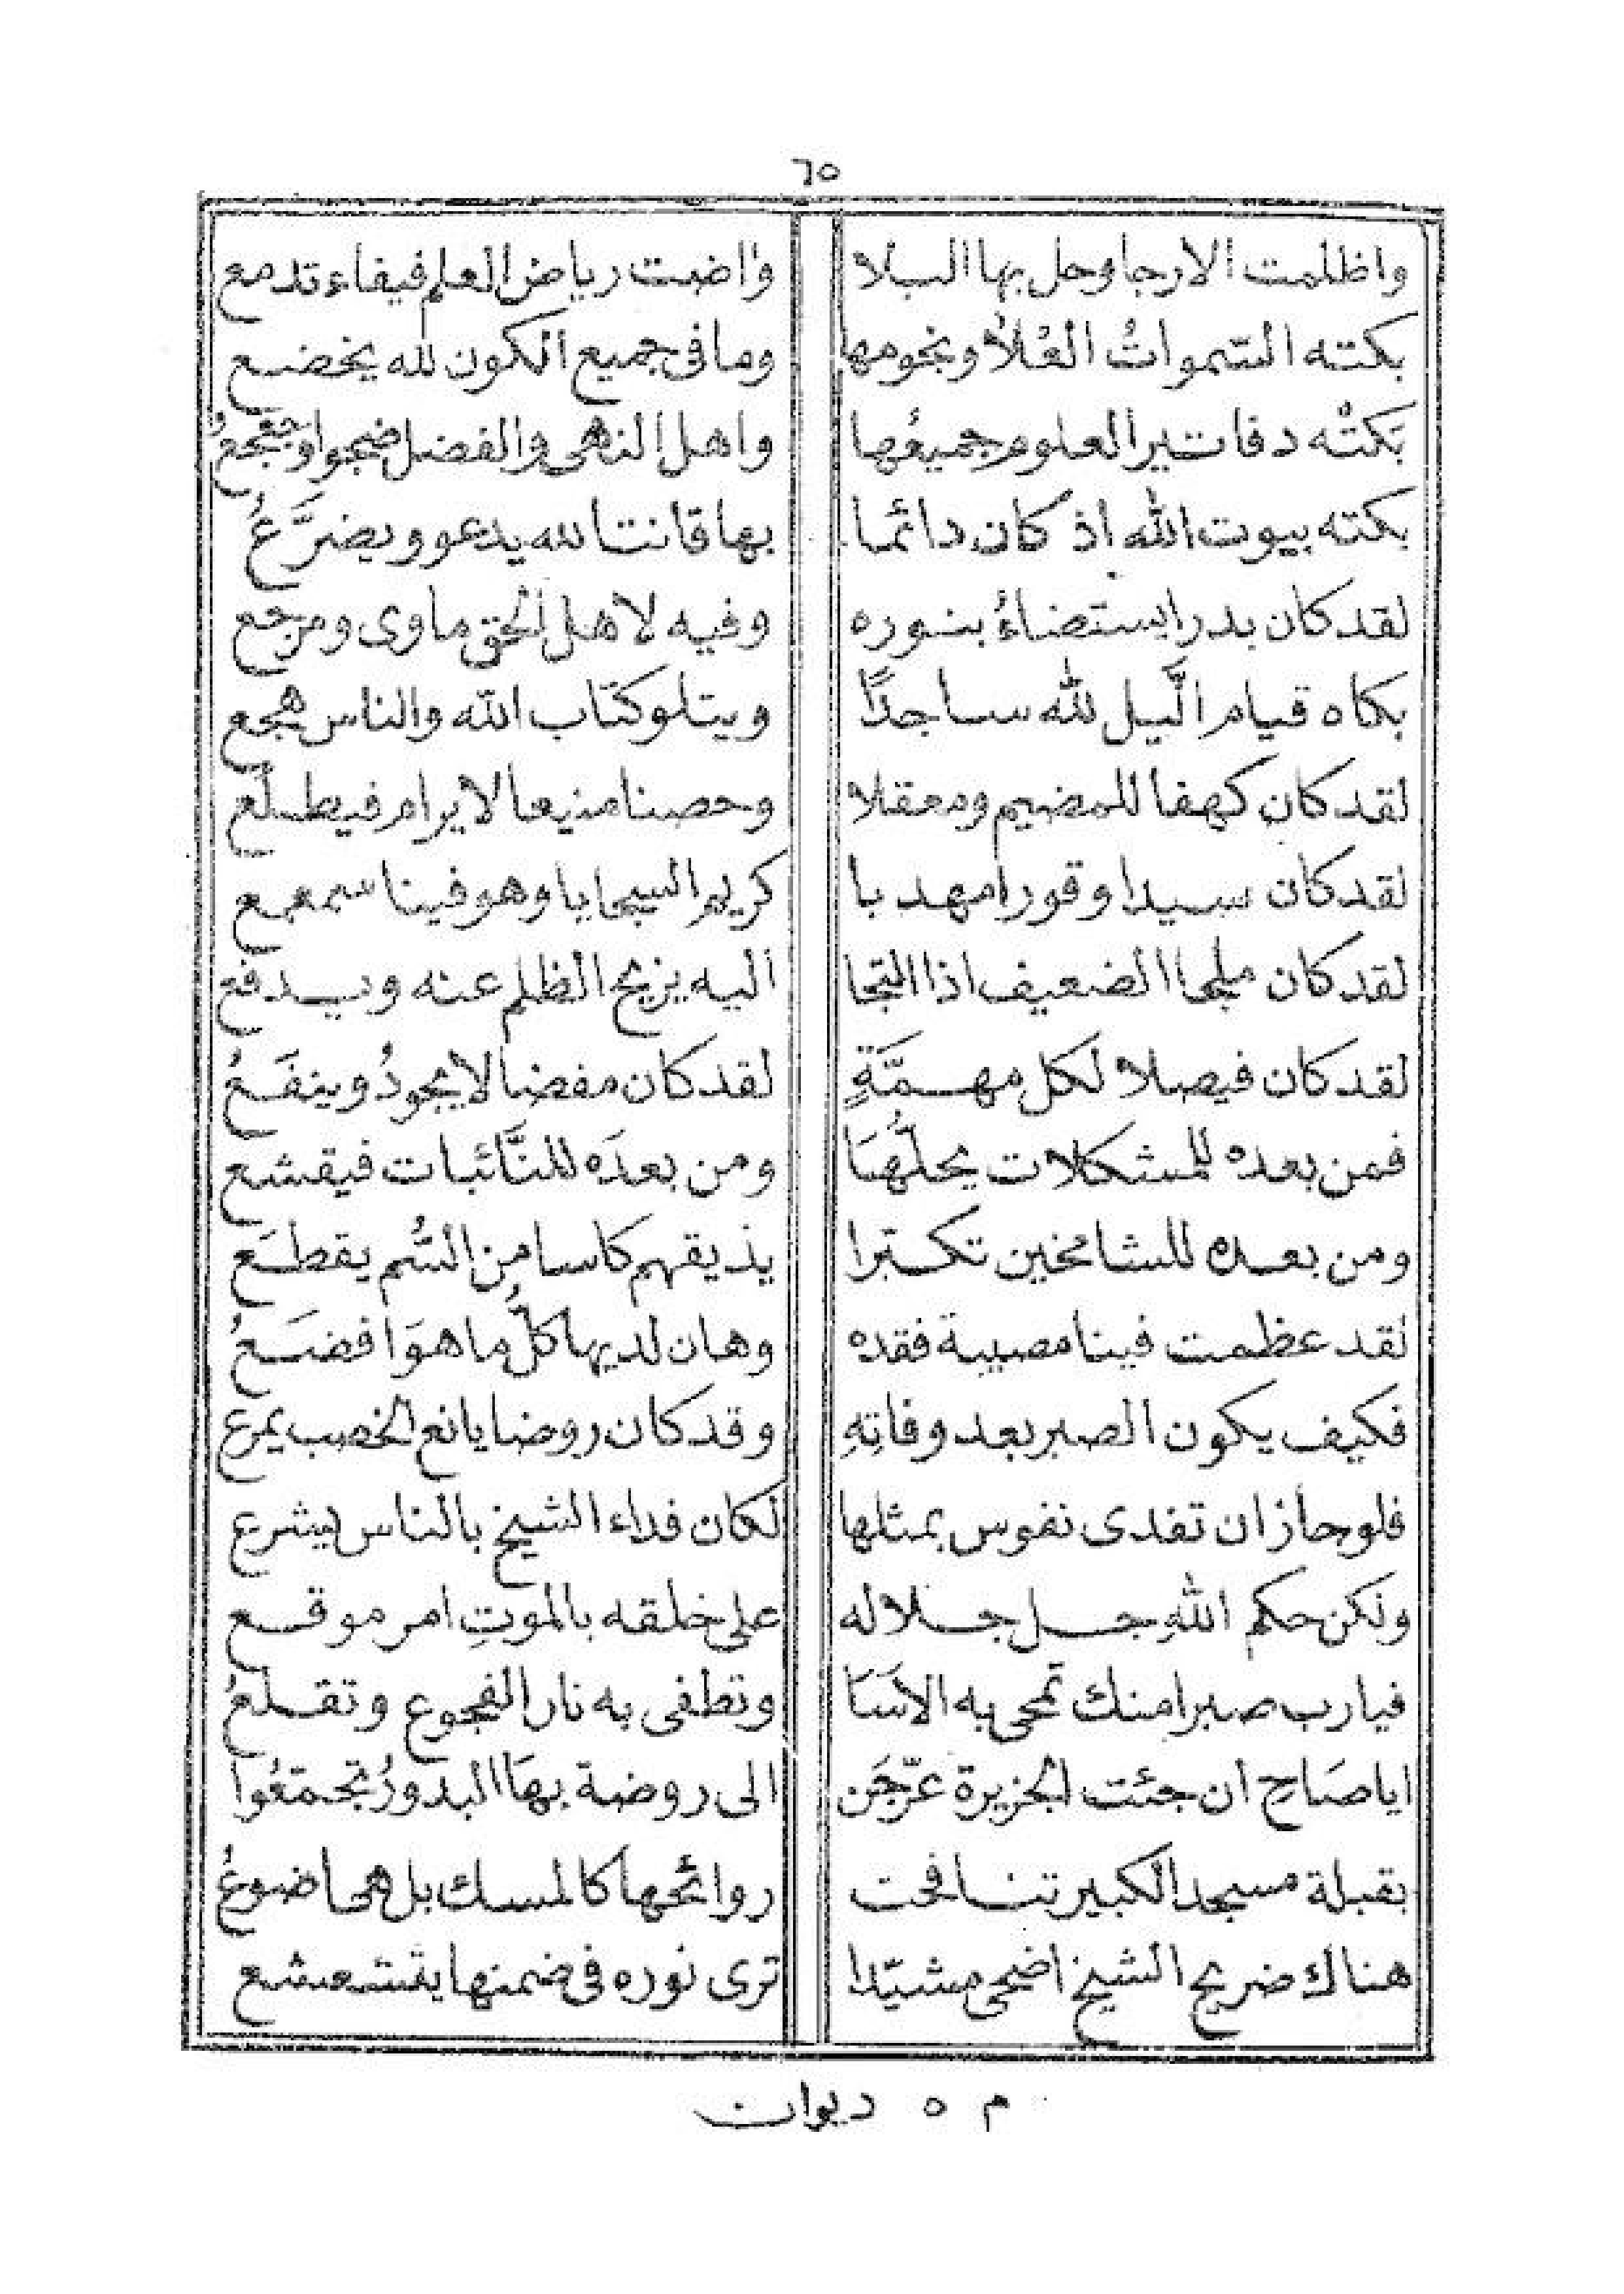 ٦٥
واظلمت الارجا وحل بها البلا واضت رياض العلم فيفاء تدمع
بكته السّموات العُلا ونجومها وما فى جميع الكون لله يخضع
بَكتْه دفاتير العلوم جميعُها واهل النهى والفضل ضجوا
بكته بيوت الله اذ كان دائما بها قانتا لله يدعو ويضرَّعُ
لقد كان بدرا يستضاءُ بنوره وفيه لاهل الحق ماوى ومرجع
بكاه قيام الَّيل لله ساجدًا ويتلو كتاب الله والناس هجع
لقد كان كهفا للمضيم ومعقلا وحصنا منيعا لا يرام فيطلع
لقد كان سيدا وقورا مهدبا كريم السجايا وهو فينا سمعمع
لقد كان ملجا الضعيف اذا التجا اليه يزيح الظلم عنه ويدفع
لقد كان فيصلا لكل مهمَّةٍ لقد كان مفضالا يجودُ وينفَعُ
فمن بعده للمشكلات يحلُّهَا ومن بعدَه للنَّائبات فيقشع
ومن بعده للشامخين تكبرا يذيقهم كاسا من السُّم يقطَع
لقد عظمت فينا مصيبة فقده وهان لديها كلُّ ما هوَ افضَعُ
فكيف يكون الصبر بعد وفاتِهِ وقد كان روضا يانع الخصب يمرع
فلو جاز ان تفدى نفوس بمثلها لكان فداء الشيخ بالناس يشرع
ولكن حكم اللهِ جل جلاله على خلقه بالموتِ امر موقع
فيارب صبرا منك تمحى به الاسَا وتطفى به نار الفجوع وتقلعُ
ايا صَاحِ ان جئت الجزيرة عرّجَن الى روضة بهَا البدورُ تجمّعُوا
بقبلة مسجد الكبير تنافحت روائحها كالمسك بل هى اضوعُ
هناك ضريح الشيخ اضحى مشيّدا ترى نوره فى ضمنها يتشعشع
م ٥ ديوان